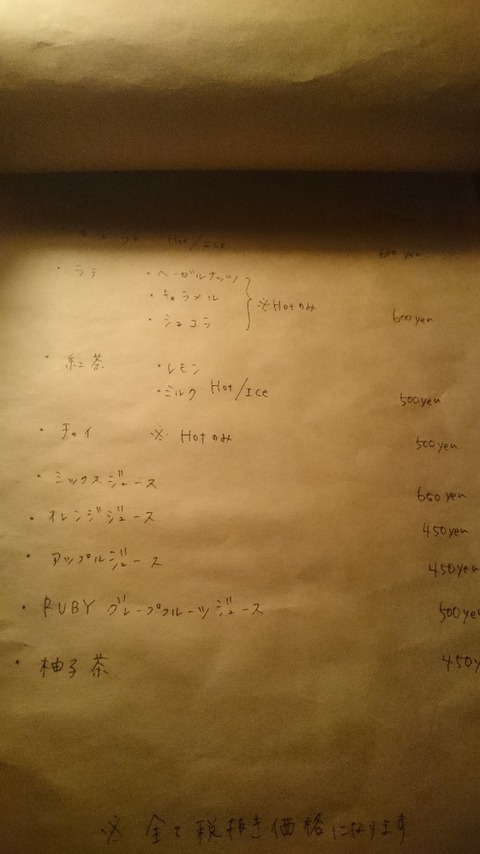 Hot/Ice 600 yen
・ラテ ・ヘーゼルナッツ
・キャラメル ※Hotのみ
・ショコラ 600 yen
・紅茶 ・レモン
・ミルク Hot/Ice 500 yen
・チャイ ※ Hotのみ 500 yen
・ミックスジュース 650 yen
・オレンジジュース 450 yen
・アップルジュース 450 yen
・RUBY グレープフルーツジュース 500 ye
・柚子茶 450 y
※ 全て税抜き価格になります